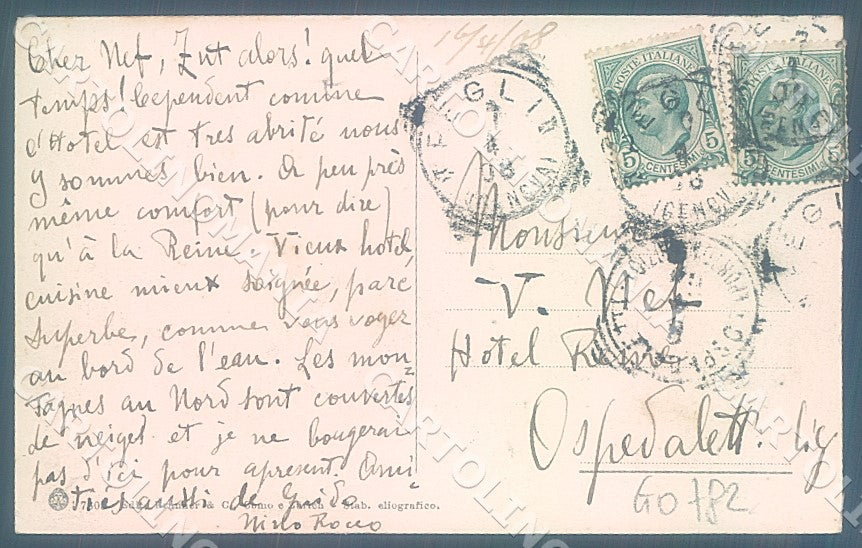 16/4/08
Cher Nef, Zut alors! quel
temps! Cependent comme
d'Hotel est tres abrité nous
y sommes bien. A peu près
même comfort (pour dire)
qu'à la Reine. Vieux hotel
cuisine mieux soignée, parc
superbe, comme vous voyez
au bord de l'eau. Les mon-
tagnes au Nord sont couvertes
de neiges et je ne bougerai
pas d'ici pour apresent. Ami
tres aussi de Guido
Nino Rocco
& C. Como e Zürich - Stab. eliografico.
PEGLI
(GENOVA)
POSTE ITALIANE
5 CENTESIMI 5
POSTE ITALIANE
5 CENTESIMI
Monsieur
V. Nef
Hotel Reine
Ospedaletti Lig
GO 782
CARTOLINOMANIA